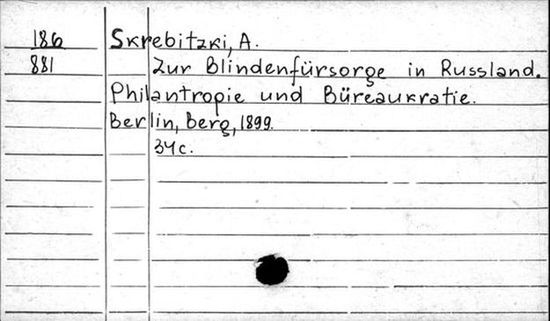 186 Skrebitzki, A.
881 Zur Blindenfürsorge in Russland.
Philantropie und Büreaukratie.
Berlin, Berg, 1899.
34c.